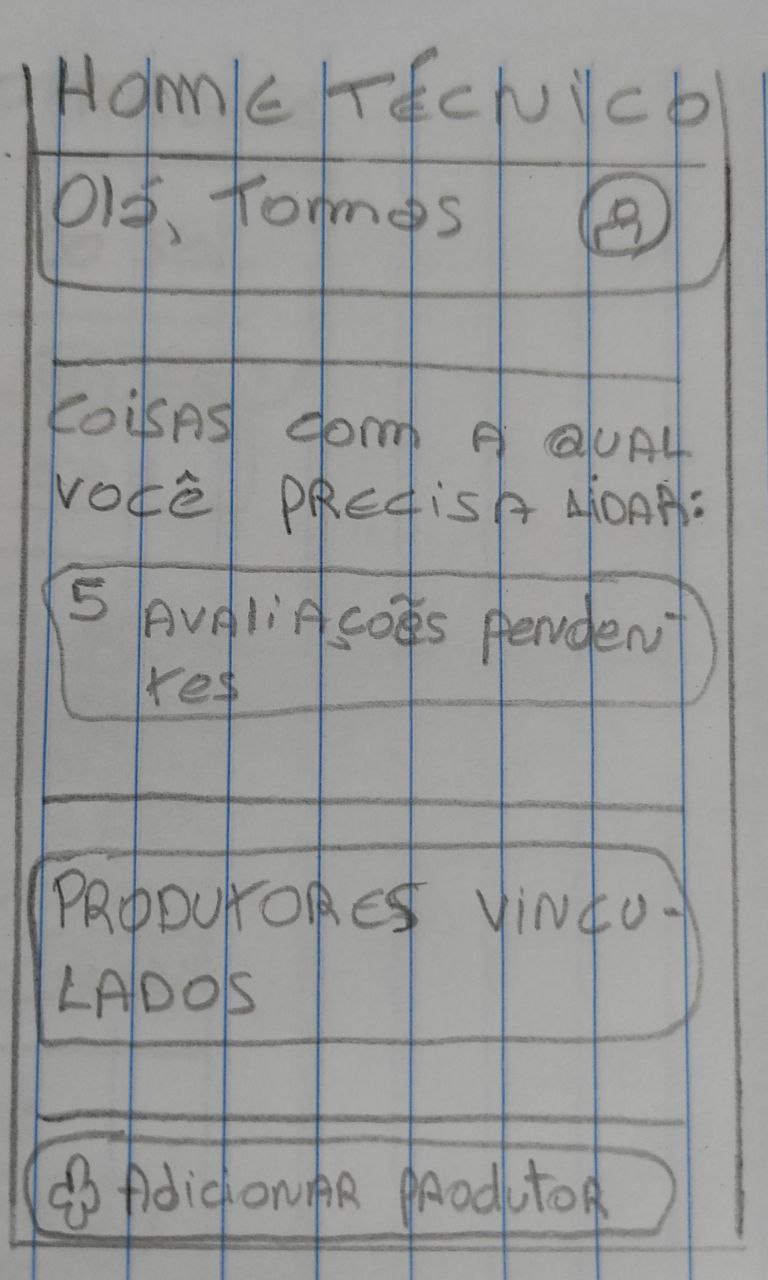 HOME TÉCNICO
Olá, Tommas
COISAS COM A QUAL
VOCÊ PRECISA LIDAR:
5 AVALIAÇÕES PENDEN-
TES
PRODUTORES VINCU-
LADOS
ADICIONAR PRODUTOR